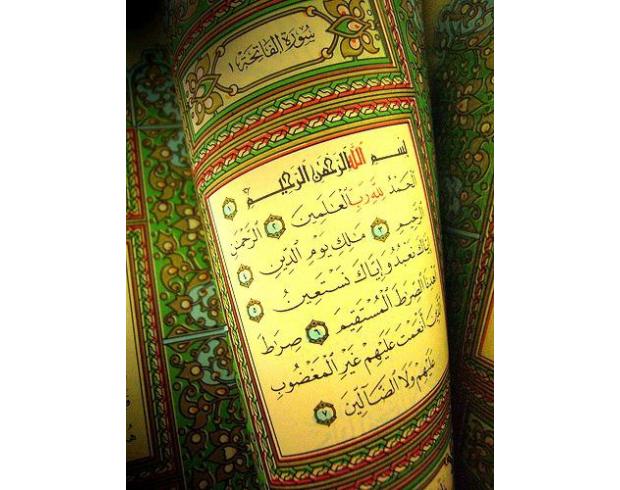 سُورَةُ الفَاتِحَةِ ١
بِسْمِ اللَّهِ الرَّحْمَٰنِ الرَّحِيمِ ١
الْحَمْدُ لِلَّهِ رَبِّ الْعَالَمِينَ ٢ الرَّحْمَٰنِ
الرَّحِيمِ ٣ مَٰلِكِ يَوْمِ الدِّينِ ٤
إِيَّاكَ نَعْبُدُ وَإِيَّاكَ نَسْتَعِينُ ٥
اهْدِنَا الصِّرَٰطَ الْمُسْتَقِيمَ ٦ صِرَٰطَ
الَّذِينَ أَنْعَمْتَ عَلَيْهِمْ غَيْرِ الْمَغْضُوبِ
عَلَيْهِمْ وَلَا الضَّالِّينَ ٧